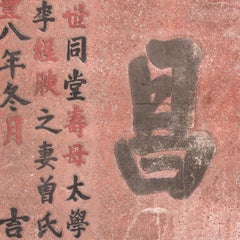 昌
世同堂寿母太學
李經之妻曾氏
八年冬月吉